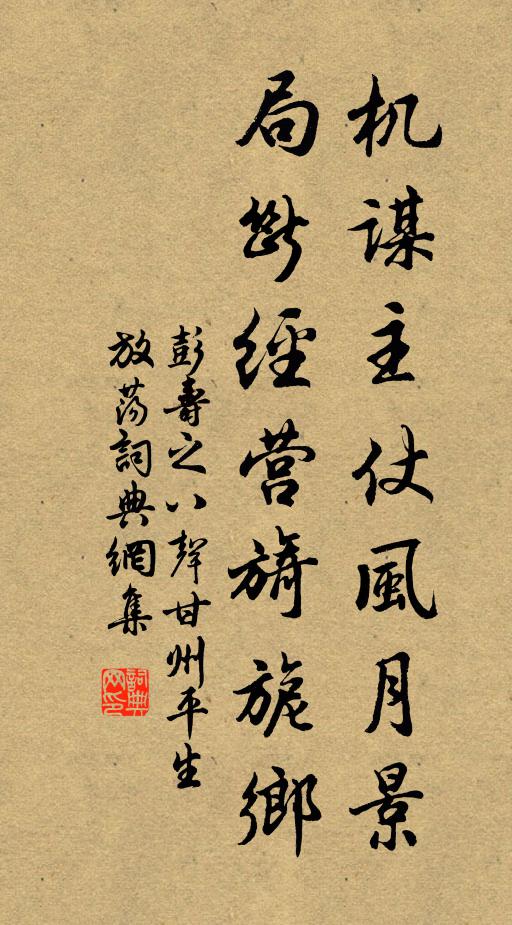 机谋主仗風月景
局斷經营旖旎鄉
彭壽之八聲甘州平生
放蕩詞典網集
詞典网印